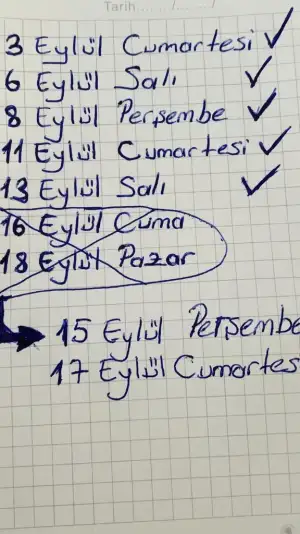 Tarih....../....../......
3 Eylül Cumartesi ✓
6 Eylül Salı ✓
8 Eylül Perşembe ✓
11 Eylül Cumartesi ✓
13 Eylül Salı ✓
16 Eylül Cuma
18 Eylül Pazar
15 Eylül Perşembe
17 Eylül Cumartes